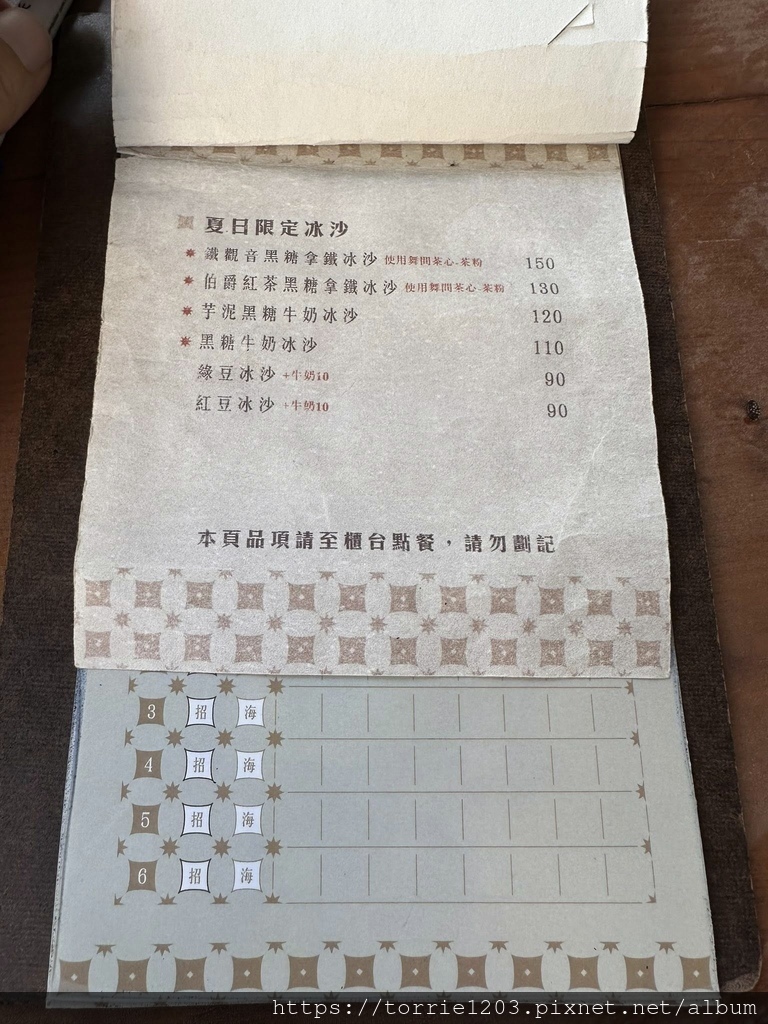 夏日限定冰沙
鐵觀音黑糖拿鐵冰沙 使用舞間茶心-茶粉 150
伯爵紅茶黑糖拿鐵冰沙 使用舞間茶心-茶粉 130
芋泥黑糖牛奶冰沙 120
黑糖牛奶冰沙 110
綠豆冰沙 +牛奶10 90
紅豆冰沙 +牛奶10 90
本頁品項請至櫃台點餐,請勿劃記
3 招 海
4 招 海
5 招 海
6 招 海
https://torrie1203.pixnet.net/album